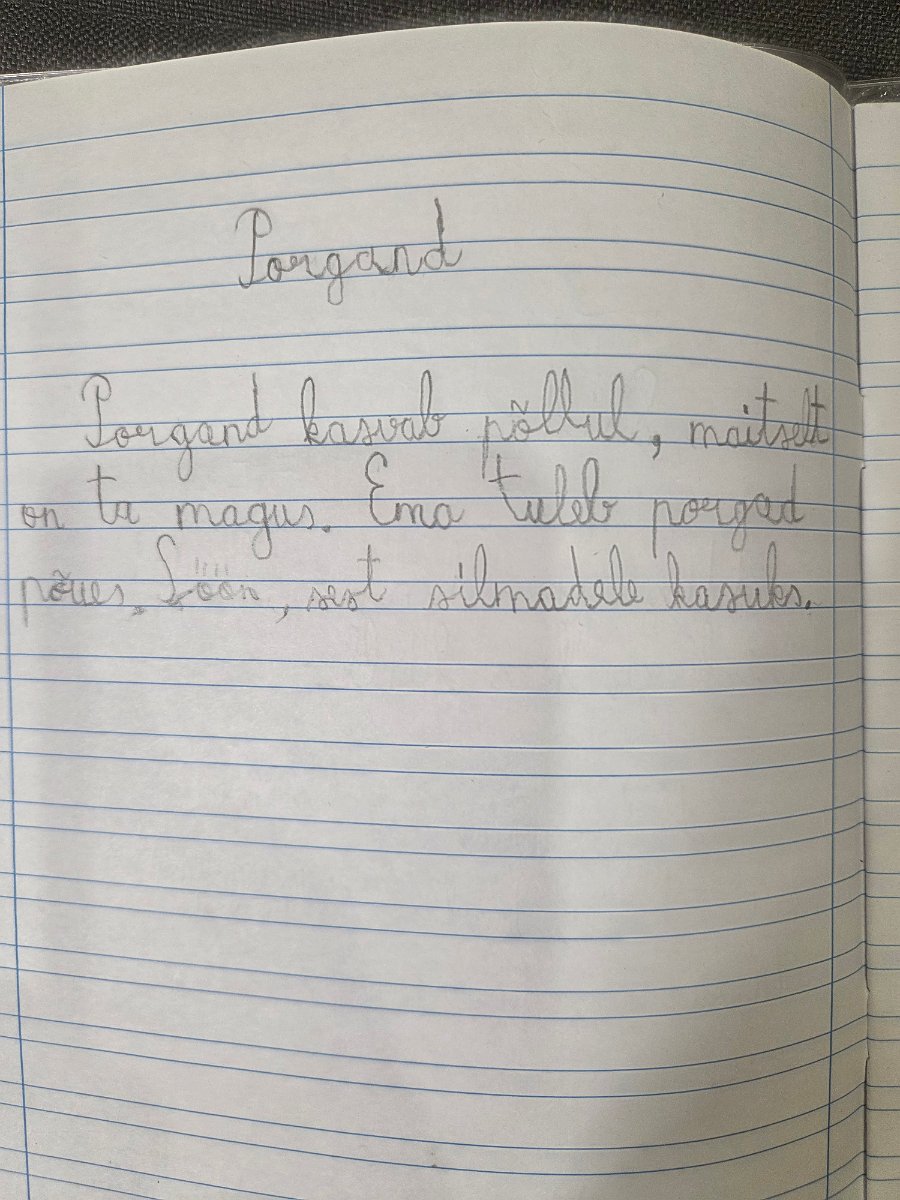 Porgand
Porgand kasvab põllul, maitselt
on ta magus. Ema tuleb porgad
põues. Söön, sest silmadele kasuks.